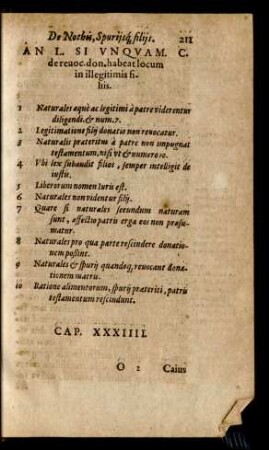 De Nothis, Spurijsq́; filijs. 211
AN L. SI VNQVAM. C.
de reuoc. don. habeat locum
in illegitimis fi-
lijs.
1 Naturales æquè ac legitimi à patre viderentur
diligendi. & num. 7.
2 Legitimatione filij donatio non reuocatur.
3 Naturalis præteritus à patre non impugnat
testamentum, nisi vt & numero 10.
4 Vbi lex subaudit filios, semper intelligit de
iustis.
5 Liberorum nomen iuris est.
6 Naturales non videntur filij.
7 Quare si naturales secundum naturam
sunt, affectio patris erga eos non præsu-
matur.
8 Naturales pro qua parte rescindere donatio-
nem possint.
9 Naturales & spurij quandoq́; reuocant dona-
tionem matris.
10 Ratione alimentorum, spurij præteriti, patris
testamentum rescindunt.
CAP. XXXIIII.
O 2 Caius